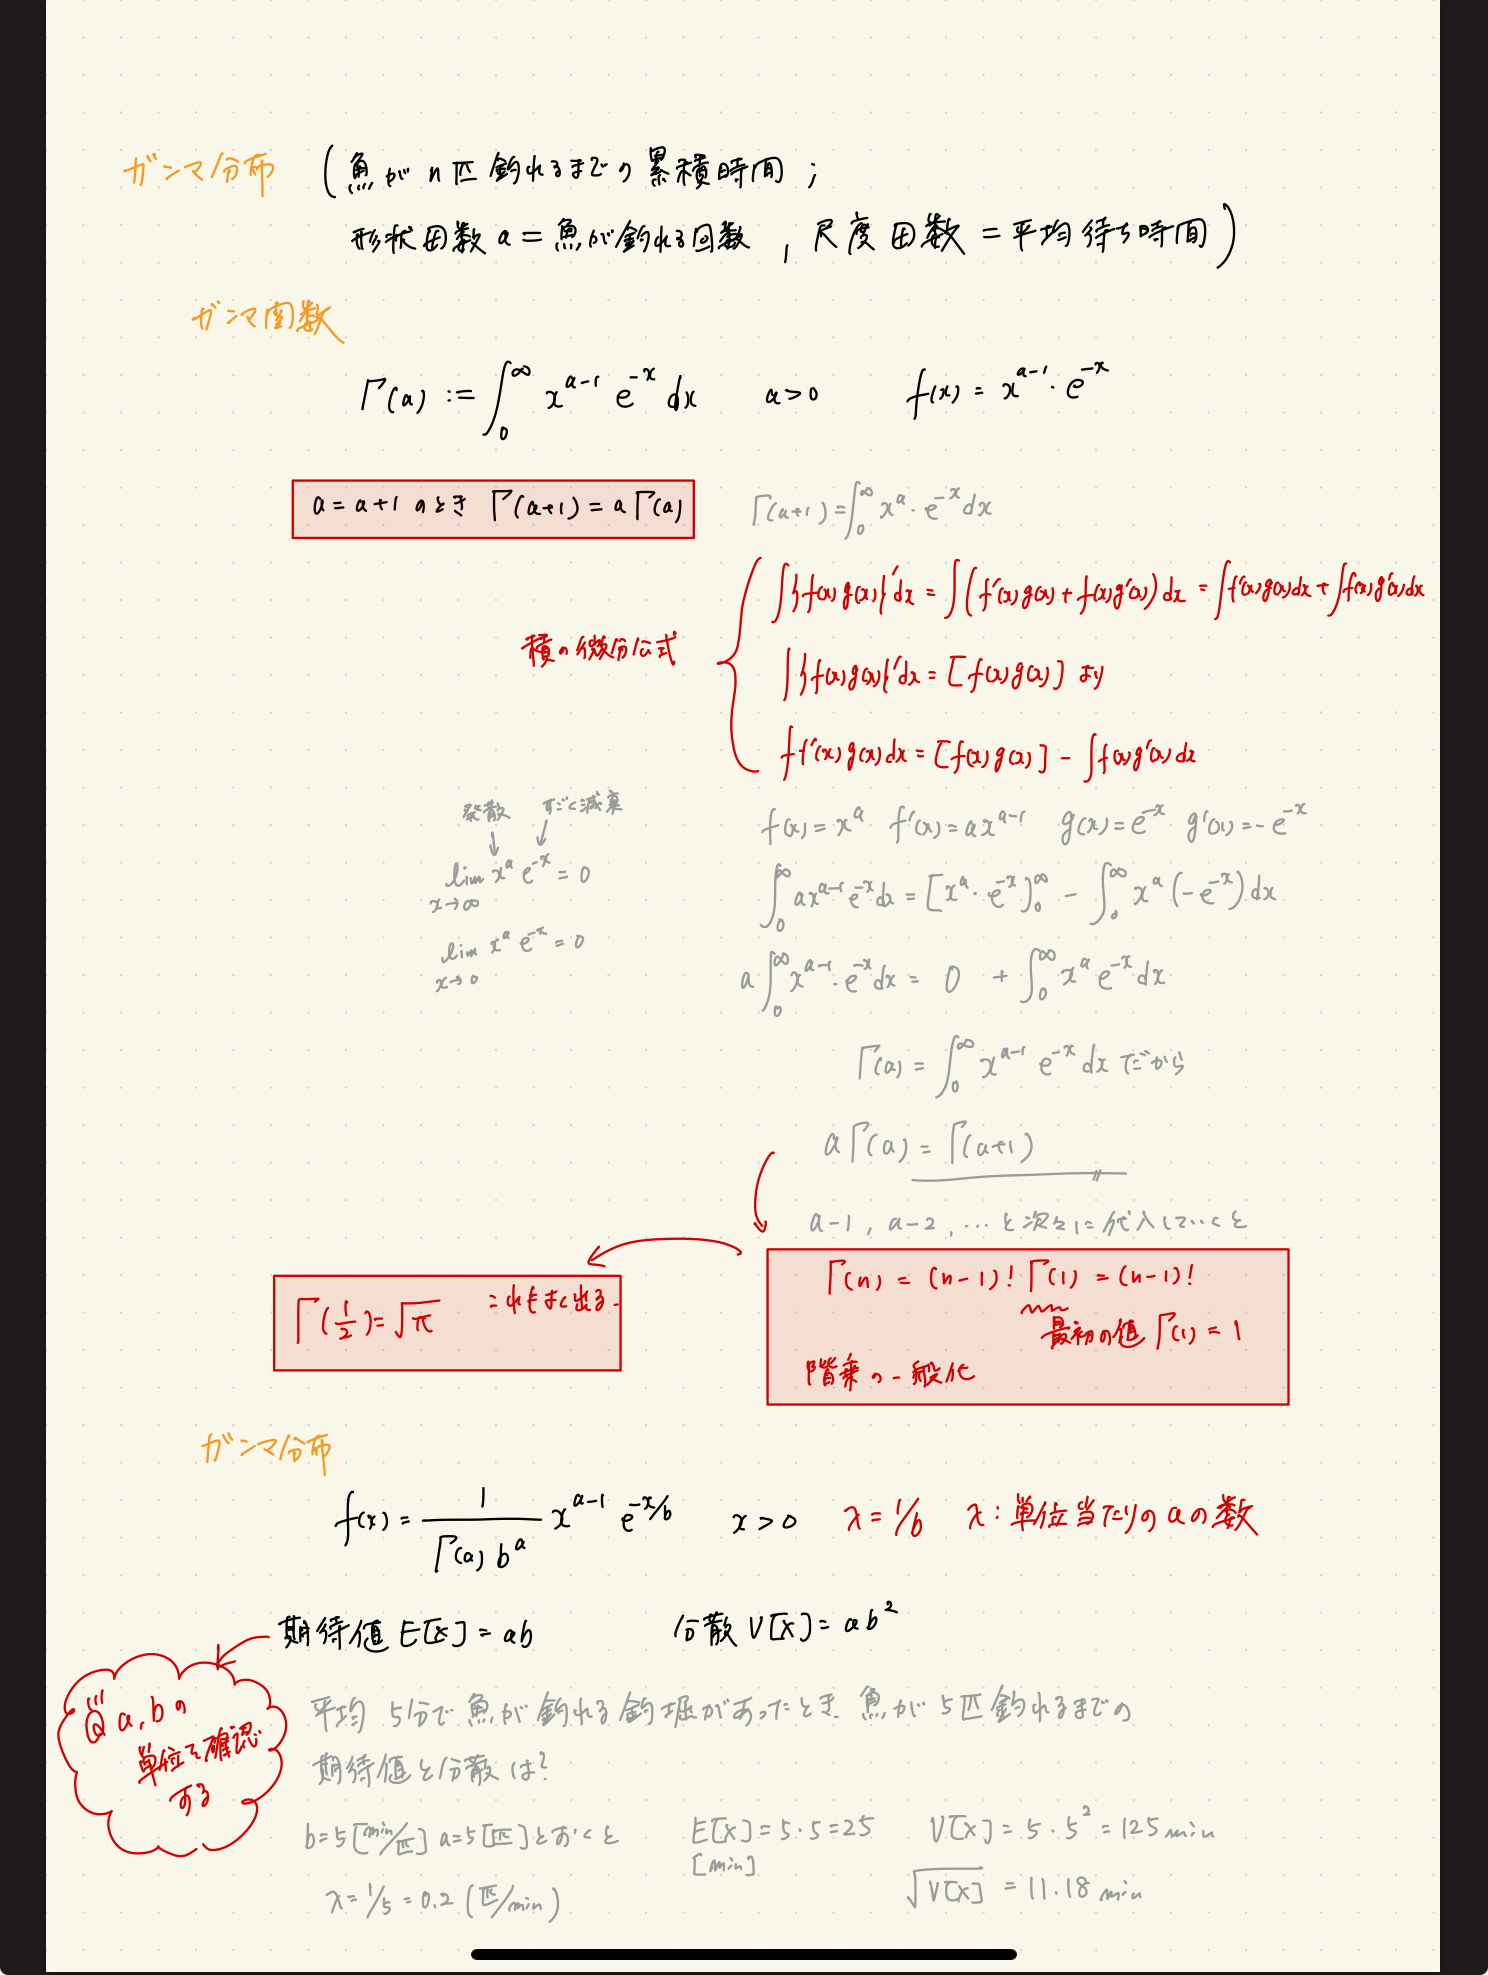 ガンマ分布 (魚がn匹釣れるまでの累積時間;
形状因数a=魚が釣れる回数, 尺度因数=平均待ち時間)
ガンマ関数
Γ(a) := ∫₀^∞ x^{a-1} e^{-x} dx a>0 f(x) = x^{a-1}・e^{-x}
a=a+1 のとき Γ(a+1)=aΓ(a)
Γ(a+1)=∫₀^∞ x^a・e^{-x}dx
積の微分公式
∫{f(x)g(x)}'dx = ∫(f'(x)g(x)+f(x)g'(x))dx = ∫f'(x)g(x)dx+∫f(x)g'(x)dx
∫{f(x)g(x)}'dx = [f(x)g(x)] より
∫f'(x)g(x)dx=[f(x)g(x)] - ∫f(x)g'(x)dx
発散 すごく減衰
lim x^a e^{-x} = 0
x→∞
lim x^a e^{-x} = 0
x→0
f(x)=x^a f'(x)=ax^{a-1} g(x)=e^{-x} g'(x)=-e^{-x}
∫₀^∞ ax^{a-1}e^{-x}dx = [x^a・e^{-x}]₀^∞ - ∫₀^∞ x^a(-e^{-x})dx
a∫₀^∞ x^{a-1}・e^{-x}dx = 0 + ∫₀^∞ x^a e^{-x}dx
Γ(a) = ∫₀^∞ x^{a-1} e^{-x} dx だから
aΓ(a) = Γ(a+1)
a-1, a-2, …と次々に代入していくと
Γ(n) = (n-1)! Γ(1) = (n-1)!
最初の値 Γ(1) = 1
階乗の一般化
Γ(1/2)=√π これもよく出る.
ガンマ分布
f(x) = 1/(Γ(a) b^a) x^{a-1} e^{-x/b} x>0 λ=1/b λ:単位当たりのaの数
期待値 E[X] = ab 分散 V[X] = ab²
a,bの
単位を確認
する
平均 5分で魚が釣れる釣堀があったとき 魚が5匹釣れるまでの
期待値と分散は?
b=5[min/匹] a=5[匹]とおくと E[X]=5・5=25 V[X]=5・5²=125min
[min]
λ=1/5=0.2 (匹/min) √V[X] = 11.18 min